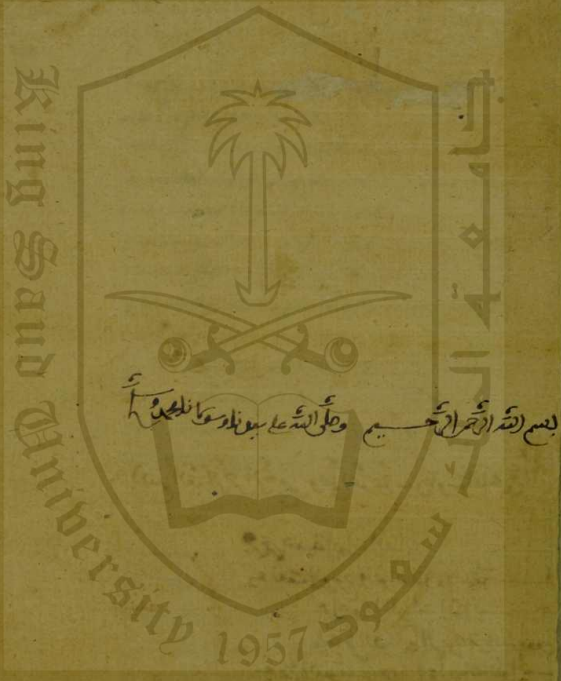 بسم الله الرحمن الرحيم وصلى الله على سيدنا ومولانا محمد وسلم
King Saud University
جامعة الملك سعود
1957